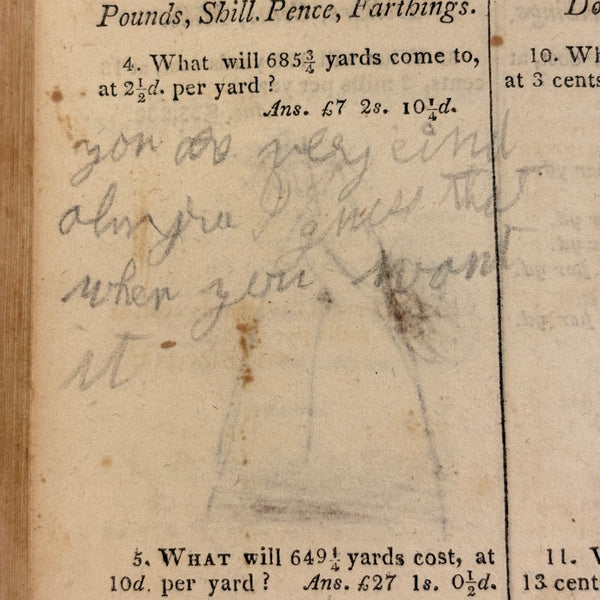 Pounds, Shill. Pence, Farthings.
4. What will 685¾ yards come to,
at 2½d. per yard?
Ans. £7 2s. 10¼d.
10. Wh
at 3 cents
you as very cind
I guess that
when you wont
it
5. WHAT will 649¼ yards cost, at
10d. per yard? Ans. £27 1s. 0½d.
11.
13 cent